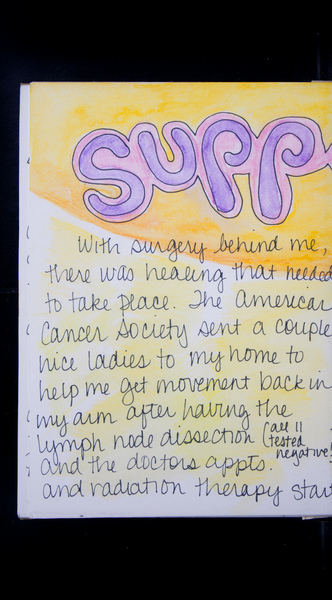 SUPP
With surgery behind me,
there was healing that needed
to take place. The American
Cancer Society sent a couple
nice ladies to my home to
help me get movement back in
my arm after having the
lymph node dissection (all 11
tested
negative!
and the doctors appts.
and radiation therapy star